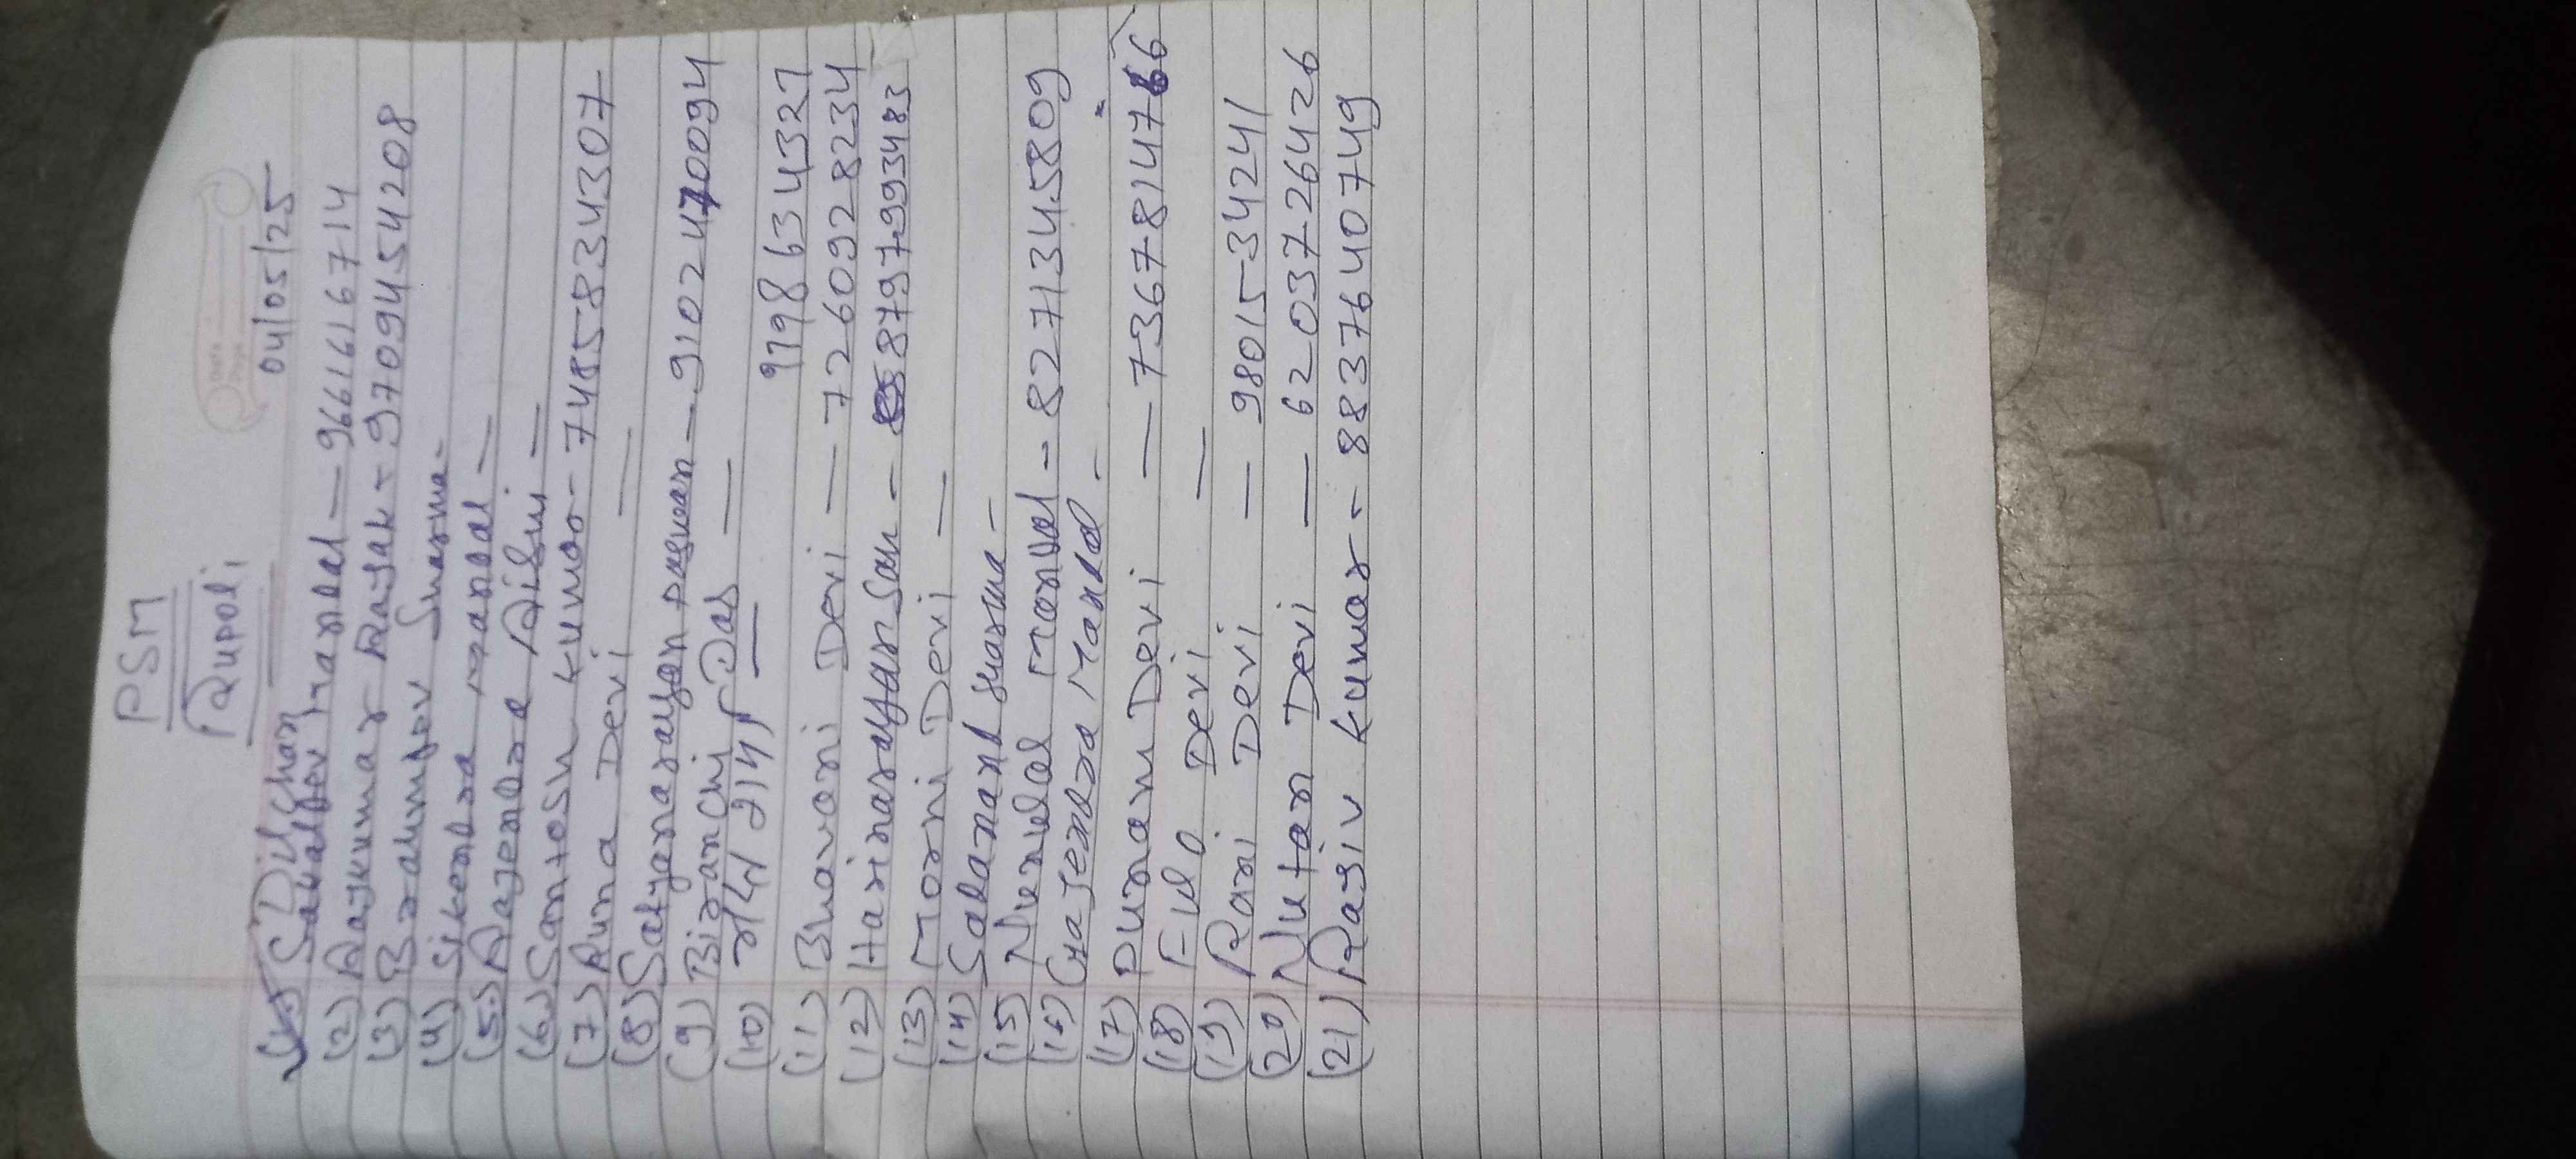 PSM
Rupoli
04/05/25
(1) Dilchan
Sadatpov Mandal — 9661616714
(2) Rajkumar Rajak - 9709454208
(3) Brahmdev Sharma -
(4) Sikendra Mandal —
(5) Rajendra Rishi —
(6) Santosh Kumar - 7485834307
(7) Runa Devi —
(8) Satyanarayan paswan — 9102470094
(9) Biranchi Das —
(10) 9198634327
(11) Bhavani Devi — 7260928234
(12) Harinarayan Sah - 8797993483
(13) Morni Devi —
(14) Sadanand sharma -
(15) Nundal Mandal - 8271345809
(16) Gajendra Mandal -
(17) Punam Devi — 7367814766
(18) Fulo Devi —
(19) Rani Devi — 9801534241
(20) Nutan Devi — 6203726426
(21) Rajiv Kumar - 8837640749